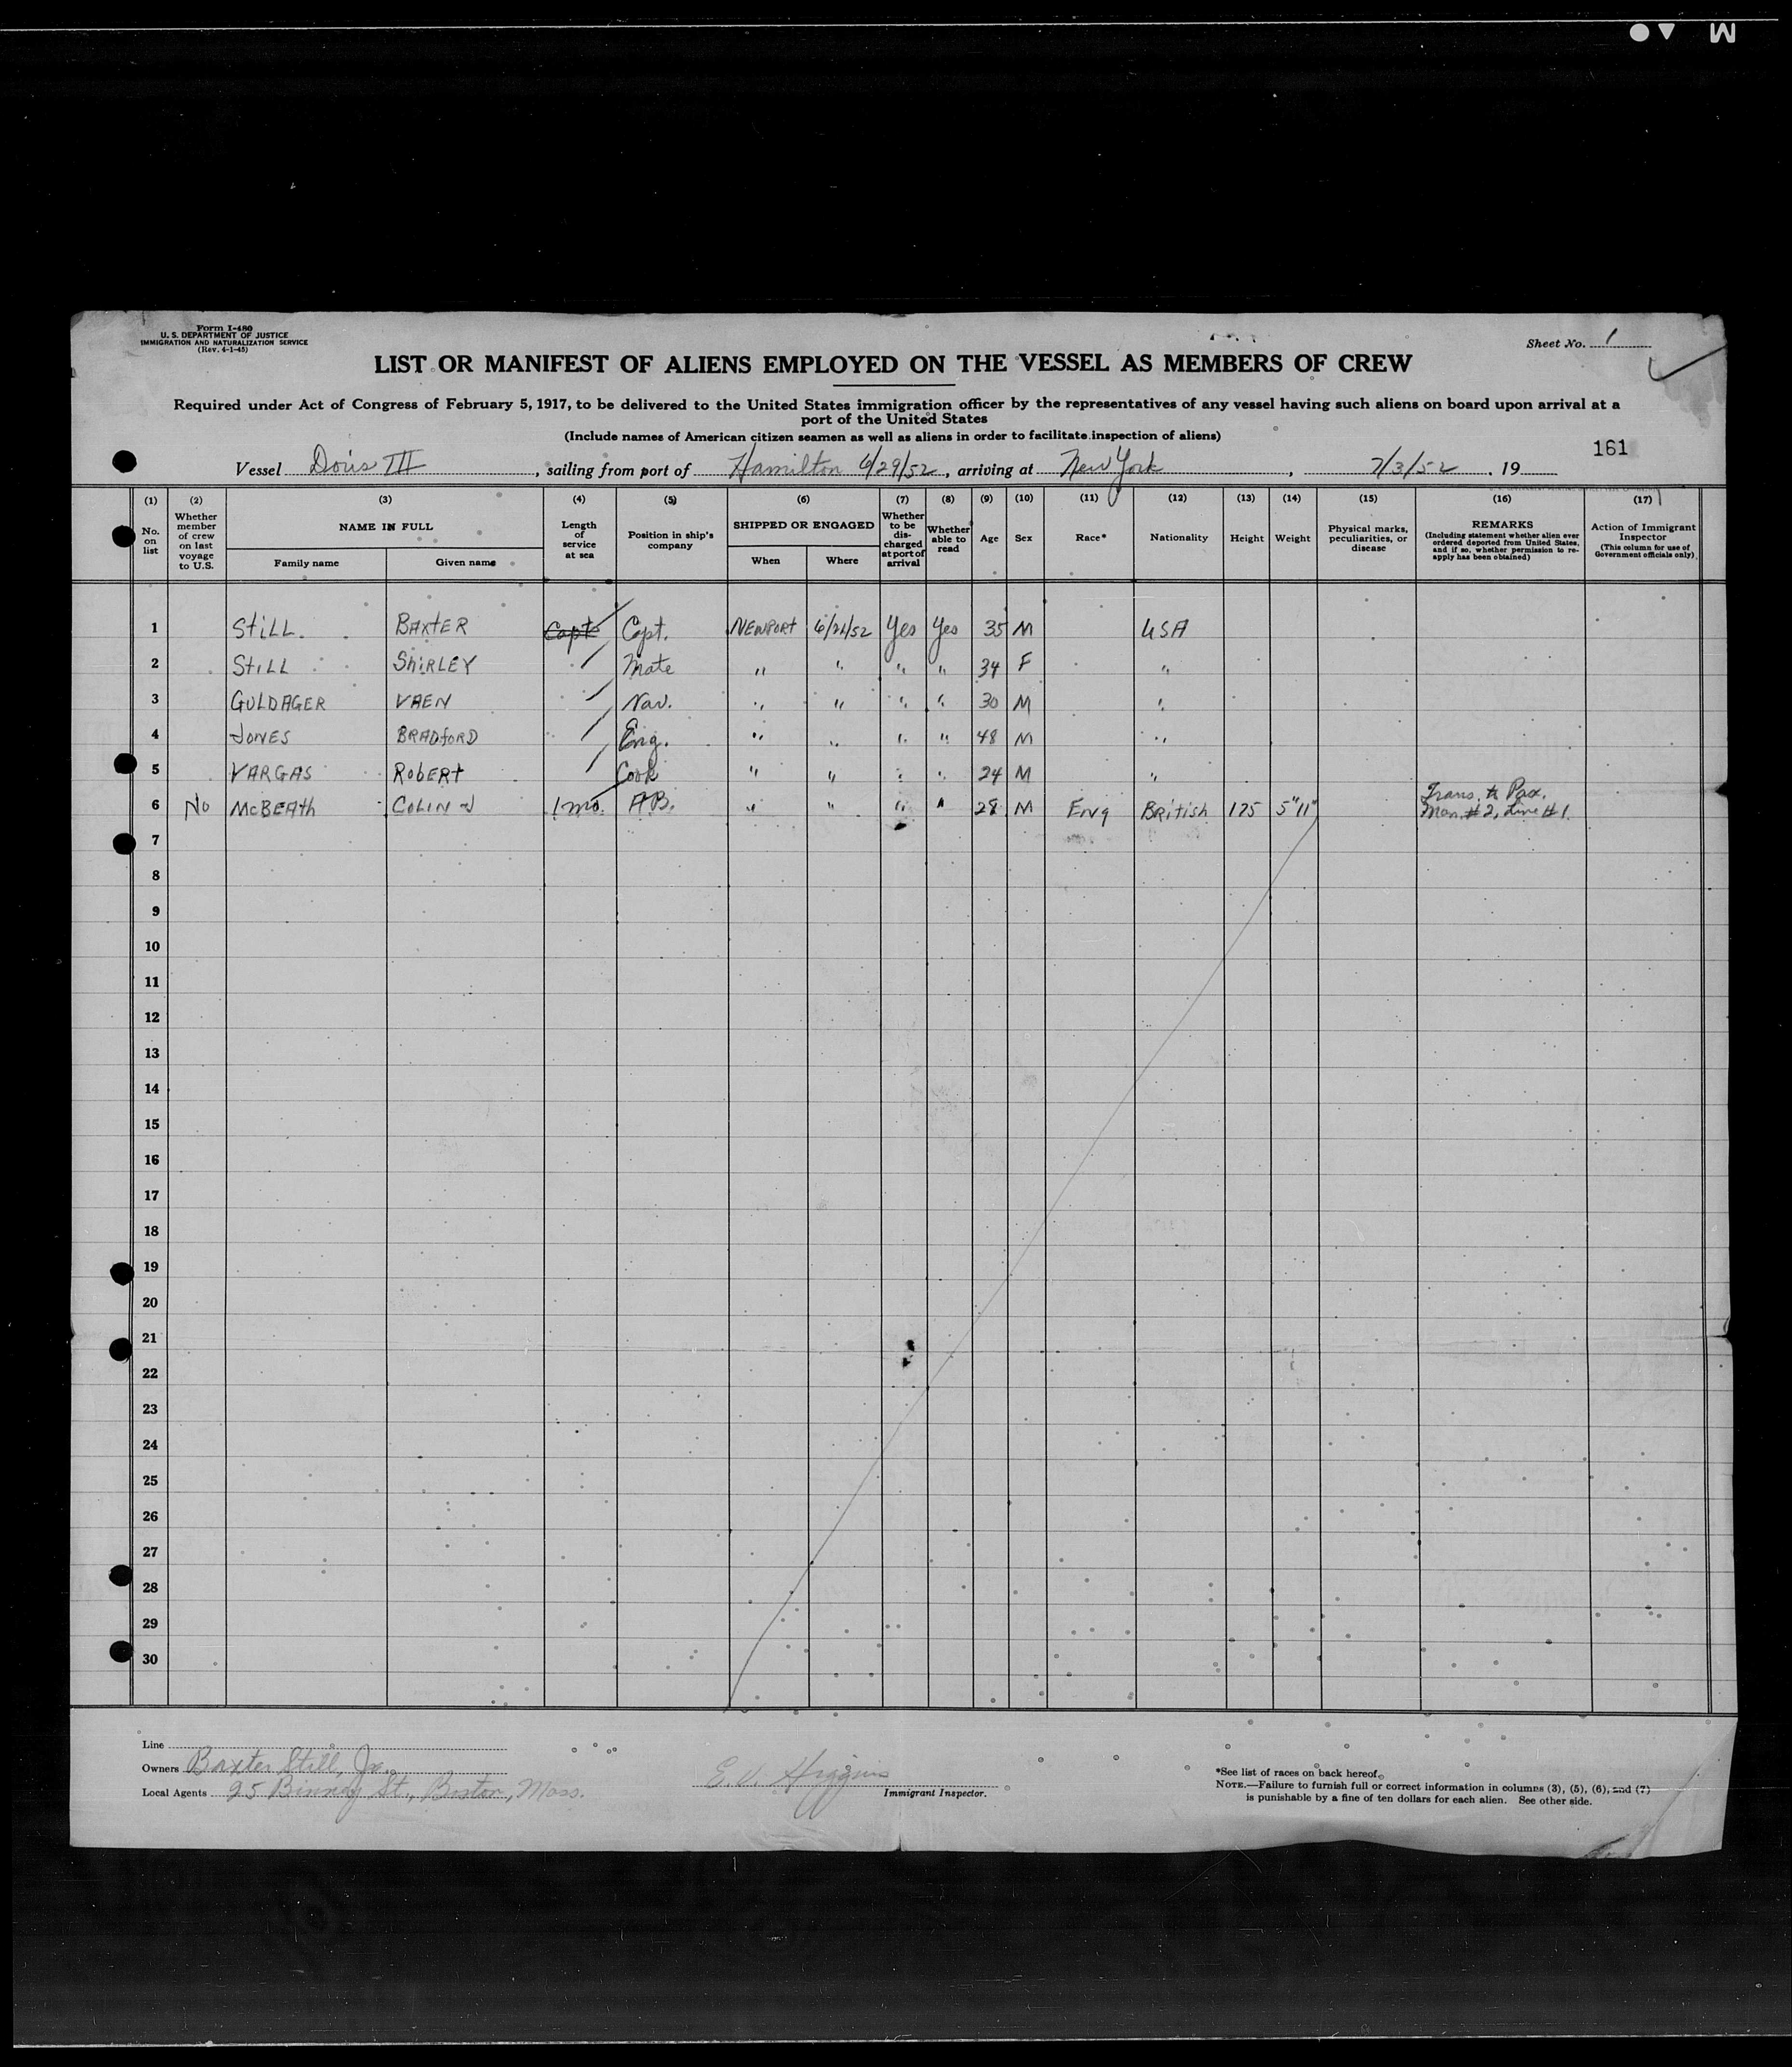 Form I-480
U. S. DEPARTMENT OF JUSTICE
IMMIGRATION AND NATURALIZATION SERVICE
(Rev. 4-1-45)
Sheet No. 1
LIST OR MANIFEST OF ALIENS EMPLOYED ON THE VESSEL AS MEMBERS OF CREW
Required under Act of Congress of February 5, 1917, to be delivered to the United States immigration officer by the representatives of any vessel having such aliens on board upon arrival at a
port of the United States
(Include names of American citizen seamen as well as aliens in order to facilitate inspection of aliens)
161
Vessel Doris III, sailing from port of Hamilton 6/29/52, arriving at New York, 7/3/52, 19
(1) No. on list (2) Whether member of crew on last voyage to U.S. (3) NAME IN FULL Family name Given name (4) Length of service at sea (5) Position in ship's company (6) SHIPPED OR ENGAGED When Where (7) Whether to be discharged at port of arrival (8) Whether able to read (9) Age (10) Sex (11) Race* (12) Nationality (13) Height (14) Weight (15) Physical marks, peculiarities, or disease (16) REMARKS (Including statement whether alien ever ordered deported from United States, and if so, whether permission to re-apply has been obtained) (17) Action of Immigrant Inspector (This column for use of Government officials only)
1 STILL BAXTER Capt Capt. NEWPORT 6/21/52 Yes Yes 35 M USA
2 STILL SHIRLEY Mate " " " " 34 F "
3 GULDAGER VAEN Nav. " " " " 30 M "
4 JONES BRADFORD Eng. " " " " 48 M "
5 VARGAS ROBERT Cook " " " " 24 M "
6 No McBEATH COLIN J 1 mo. AB. " " " " 28 M Eng British 175 5"11" Trans. to Pax. Man. #2, Line #1.
7
8
9
10
11
12
13
14
15
16
17
18
19
20
21
22
23
24
25
26
27
28
29
30
Line
Owners Baxter Still, Jr.
Local Agents 25 Binney St., Boston, Mass.
E. V. Higgins
Immigrant Inspector.
*See list of races on back hereof.
NOTE.—Failure to furnish full or correct information in columns (3), (5), (6), and (7)
is punishable by a fine of ten dollars for each alien. See other side.